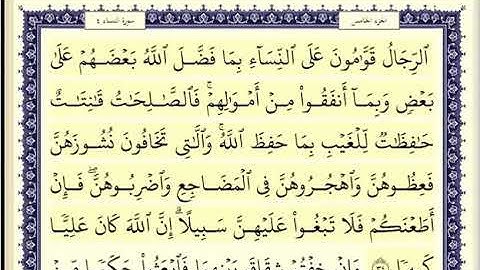 الجزء الخامس سورة النساء ٤
الرِّجَالُ قَوَّٰمُونَ عَلَى النِّسَآءِ بِمَا فَضَّلَ اللَّهُ بَعْضَهُمْ عَلَىٰ
بَعْضٍ وَبِمَآ أَنفَقُوا۟ مِنْ أَمْوَٰلِهِمْ ۚ فَالصَّٰلِحَٰتُ قَٰنِتَٰتٌ
حَٰفِظَٰتٌ لِّلْغَيْبِ بِمَا حَفِظَ اللَّهُ ۚ وَالَّٰتِى تَخَافُونَ نُشُوزَهُنَّ
فَعِظُوهُنَّ وَاهْجُرُوهُنَّ فِى الْمَضَاجِعِ وَاضْرِبُوهُنَّ ۖ فَإِنْ
أَطَعْنَكُمْ فَلَا تَبْغُوا۟ عَلَيْهِنَّ سَبِيلًا ۗ إِنَّ اللَّهَ كَانَ عَلِيًّا
كَبِيرًا وَإِنْ خِفْتُمْ شِقَاقَ بَيْنِهِمَا فَابْعَثُوا۟ حَكَمًا مِّنْ